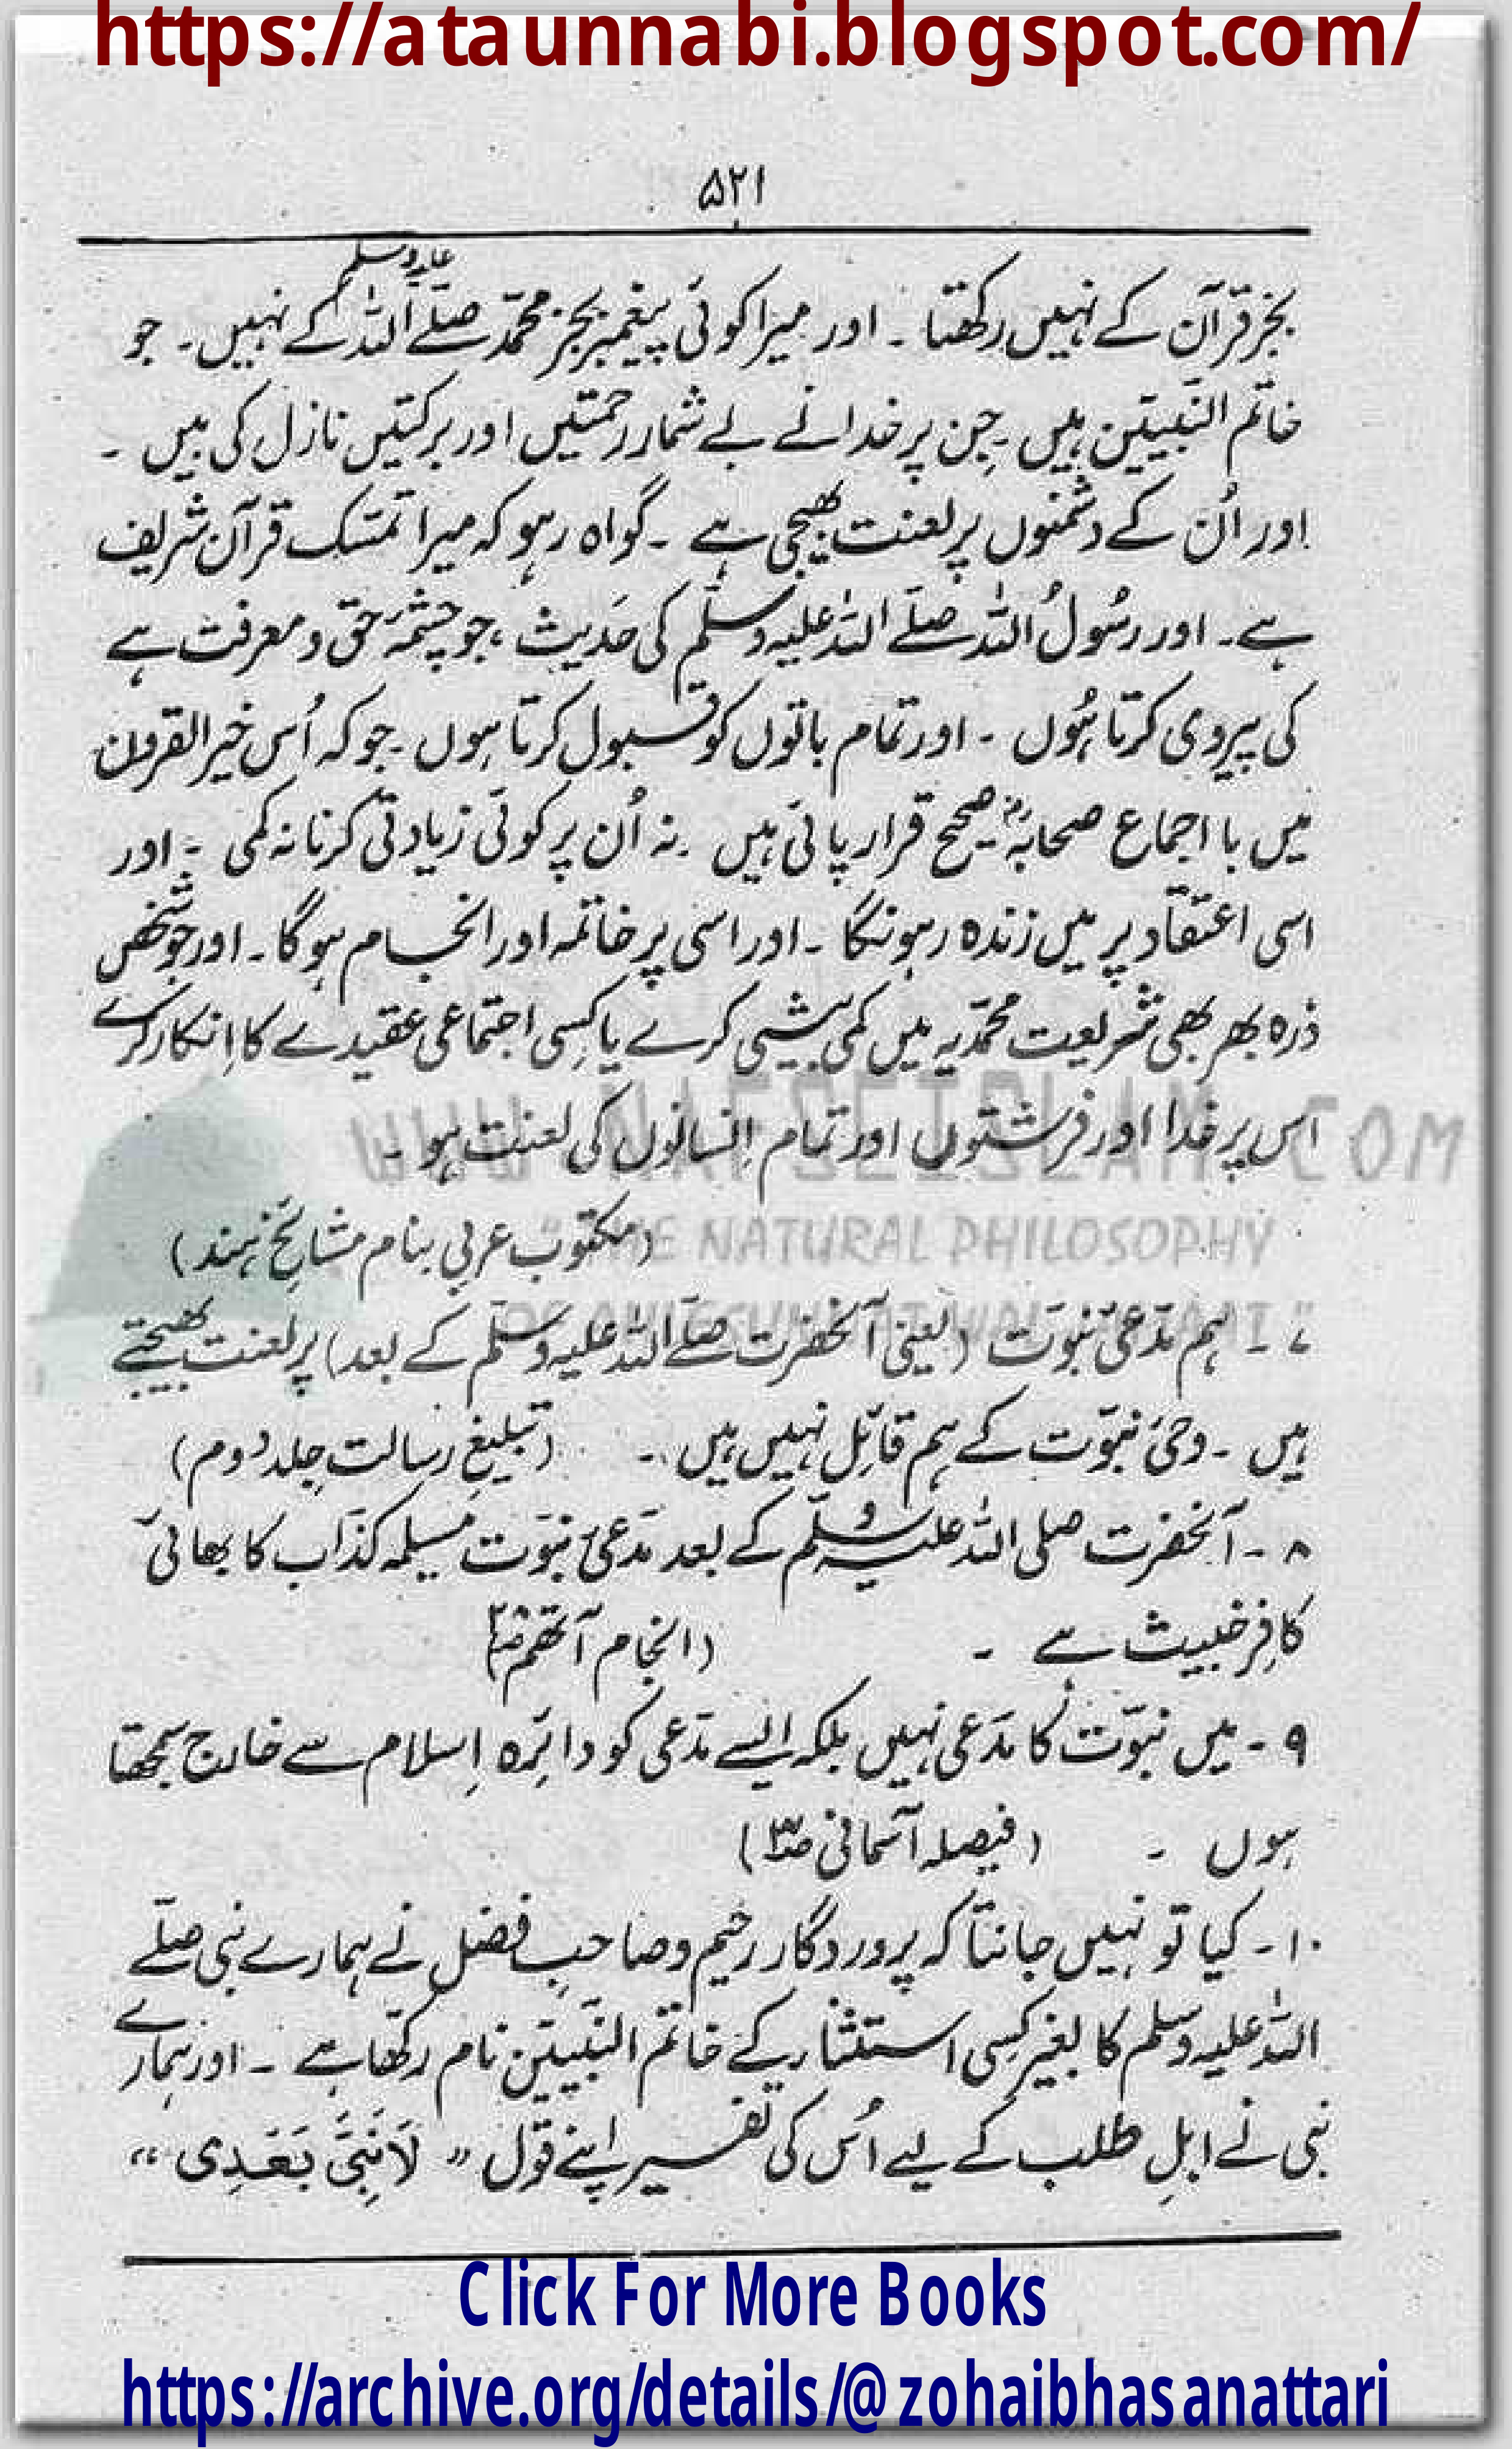 https://ataunnabi.blogspot.com/
۵۲۱
بجز قرآن کے نہیں رکھتا ۔ اور میرا کوئی پیغمبر بجز محمّد صلّے اللہ علیہ وسلم کے نہیں ۔ جو
خاتم النّبیّین ہیں ۔ جِن پر خدا نے بے شمار رحمتیں اور برکتیں نازل کی ہیں ۔
اور اُن کے دشمنوں پر لعنت بھیجی ہے ۔ گواہ رہو کہ میرا تمسّک قرآن شریف
ہے ۔ اور رسُولُ اللہ صلّے اللہ علیہ وسلّم کی حَدیث ، جو چشمۂ حق و معرفت ہے
کی پیروی کرتا ہُوں ۔ اور تمام باتوں کو قبول کرتا ہوں ۔ جو کہ اُس خیر القرون
میں با اجماع صحابہؓ صحیح قرار پائی ہیں ۔ نہ اُن پر کوئی زیادتی کرنا نہ کمی ۔ اور
اسی اعتقاد پر میں زندہ رہونگا ۔ اور اسی پر خاتمہ اور انجام ہوگا ۔ اور جو شخص
ذرہ بھر بھی شریعت محمّدیہ میں کمی بیشی کرے یا کِسی اجتماعی عقیدے کا اِنکار کرے
اس پر خدا اور فرشتوں اور تمام اِنسانوں کی لعنت ہو ۔
WWW.NAFSEISLAM.COM
(مکتوب عربی بنام مشائخِ ہند)
"THE NATURAL PHILOSOPHY
۷ ۔ ہم مدّعیِٔ نبوّت (یعنی آنحضرت صلّے اللہ علیہ وسلّم کے بعد) پر لعنت بھیجتے
ہیں ۔ وحیٔ نبوّت کے ہم قائل نہیں ہیں ۔ (تبلیغِ رسالت جِلد دوم)
۸ ۔ آنحضرت صلی اللہ علیہ وسلّم کے بعد مدّعیِٔ نبوّت مسیلمہ کذّاب کا بھائی
کافِر خبیث ہے ۔ (انجام آتھم
۹ ۔ میں نبوّت کا مدّعی نہیں بلکہ ایسے مدّعی کو دائرہ اِسلام سے خارج سمجھتا
ہوں ۔ (فیصلہ آسمانی
۱۰ ۔ کیا تو نہیں جانتا کہ پروردگار رحیم و صاحبِ فضل نے ہمارے نبی صلّے
اللہ علیہ وسلم کا بغیر کِسی استثناء کے خاتم النّبیّین نام رکھّا ہے ۔ اور ہمارے
نبی نے اہلِ طلب کے لیے اُس کی تفسیر اپنے قول “ لَا نَبِیَّ بَعْدِی ”
Click For More Books
https://archive.org/details/@zohaibhasanattari